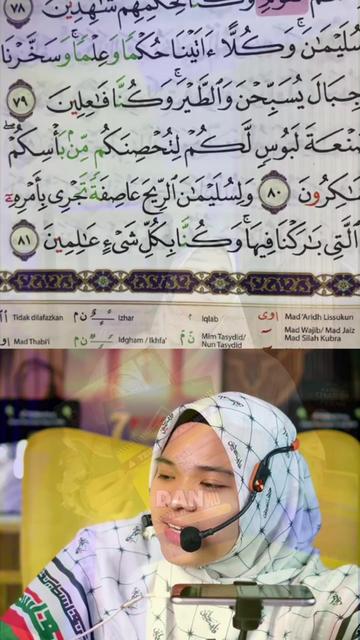 وَكُنَّا لِحُكْمِهِمْ شَٰهِدِينَ ٧٨
سُلَيْمَٰنَ ۚ وَكُلًّا ءَاتَيْنَا حُكْمًا وَعِلْمًا ۚ وَسَخَّرْنَا
جِبَالَ يُسَبِّحْنَ وَٱلطَّيْرَ ۚ وَكُنَّا فَٰعِلِينَ ٧٩
صَنْعَةَ لَبُوسٍ لَّكُمْ لِتُحْصِنَكُم مِّنۢ بَأْسِكُمْ ۖ
شَٰكِرُونَ ٨٠ وَلِسُلَيْمَٰنَ ٱلرِّيحَ عَاصِفَةً تَجْرِى بِأَمْرِهِۦٓ
ٱلَّتِى بَٰرَكْنَا فِيهَا ۚ وَكُنَّا بِكُلِّ شَىْءٍ عَٰلِمِينَ ٨١
Tidak dilafazkan ن م Izhar م Iqlab اوى Mad 'Aridh Lissukun
Mad Thabi'i ن م Idgham / Ikhfa' نّ مّ Mim Tasydid/ Nun Tasydid Mad Wajib/ Mad Jaiz Mad Silah Kubra
DAN